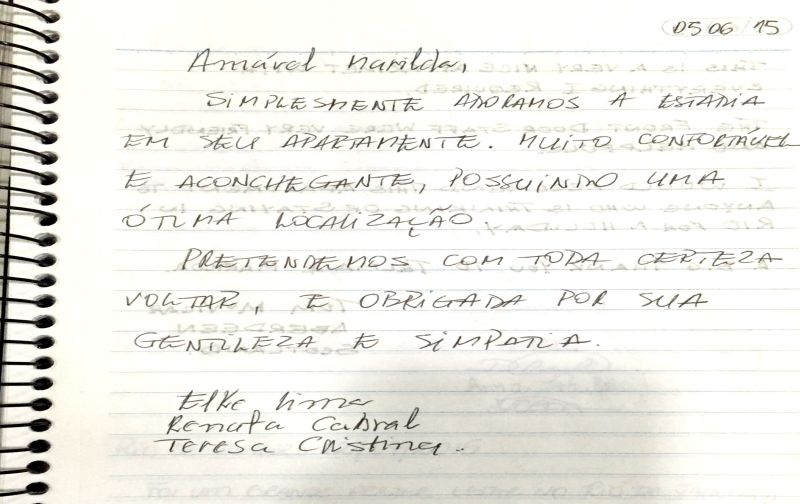 05 06 / 15
Amável Marilda,
SIMPLESMENTE ADORAMOS A ESTADIA
EM SEU APARTAMENTE. MUITO CONFORTÁVEL
E ACONCHEGANTE, POSSUINDO UMA
ÓTIMA LOCALIZAÇÃO.
PRETENDEMOS COM TODA CERTEZA
VOLTAR, E OBRIGADA POR SUA
GENTILEZA E SIMPATIA.
Elke Lima
Renata Cabral
Teresa Cristina.